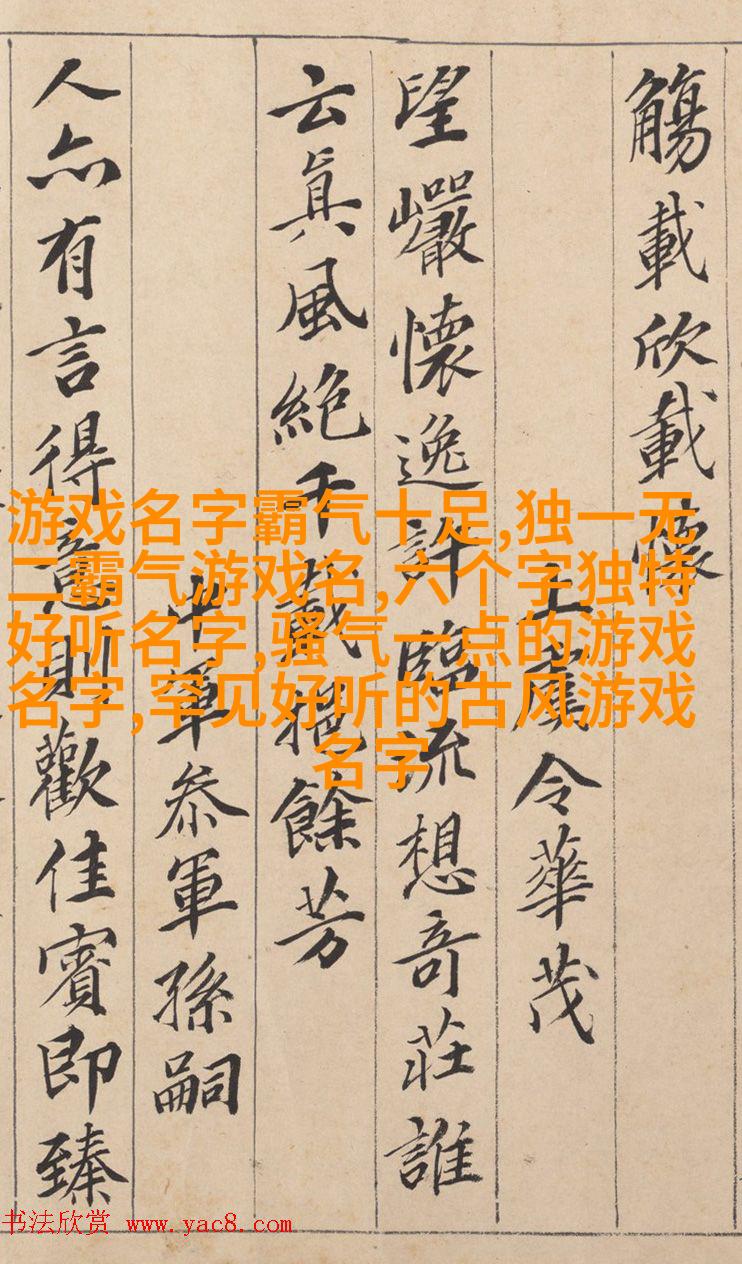 觴載欣載懷
上虞令華茂
望巖懷逸許臨流想奇莊誰
云眞風絶千載挹餘芳
中軍叅軍孫嗣
人亦有言得意則歡佳賓即臻
游戏名字霸气十足,独一无
二霸气游戏名,六个字独特
好听名字,骚气一点的游戏
名字,罕见好听的古风游戏
名字
书法欣赏 www.yac8.com